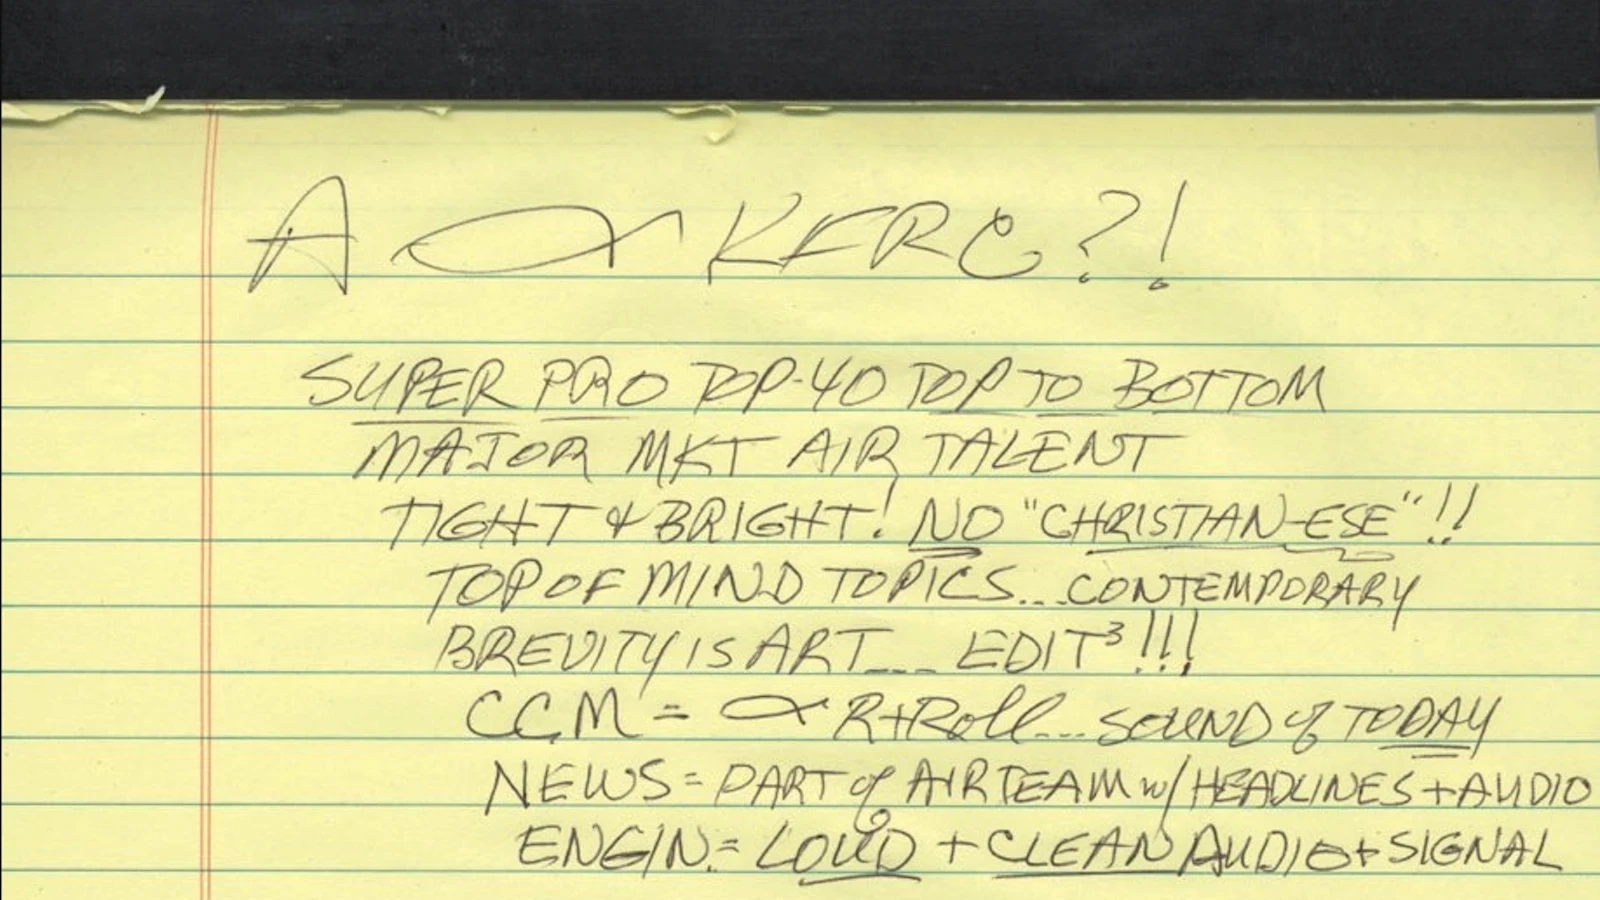 A KFRC?!
SUPER PRO TOP-40 TOP TO BOTTOM
MAJOR MKT AIR TALENT
TIGHT & BRIGHT! NO "CHRISTIAN-ESE"!!
TOP OF MIND TOPICS... CONTEMPORARY
BREVITY IS ART... EDIT³!!!
CCM = R+Roll... SOUND of TODAY
NEWS = PART of AIR TEAM w/ HEADLINES + AUDIO
ENGIN. = LOUD + CLEAN AUDIO + SIGNAL